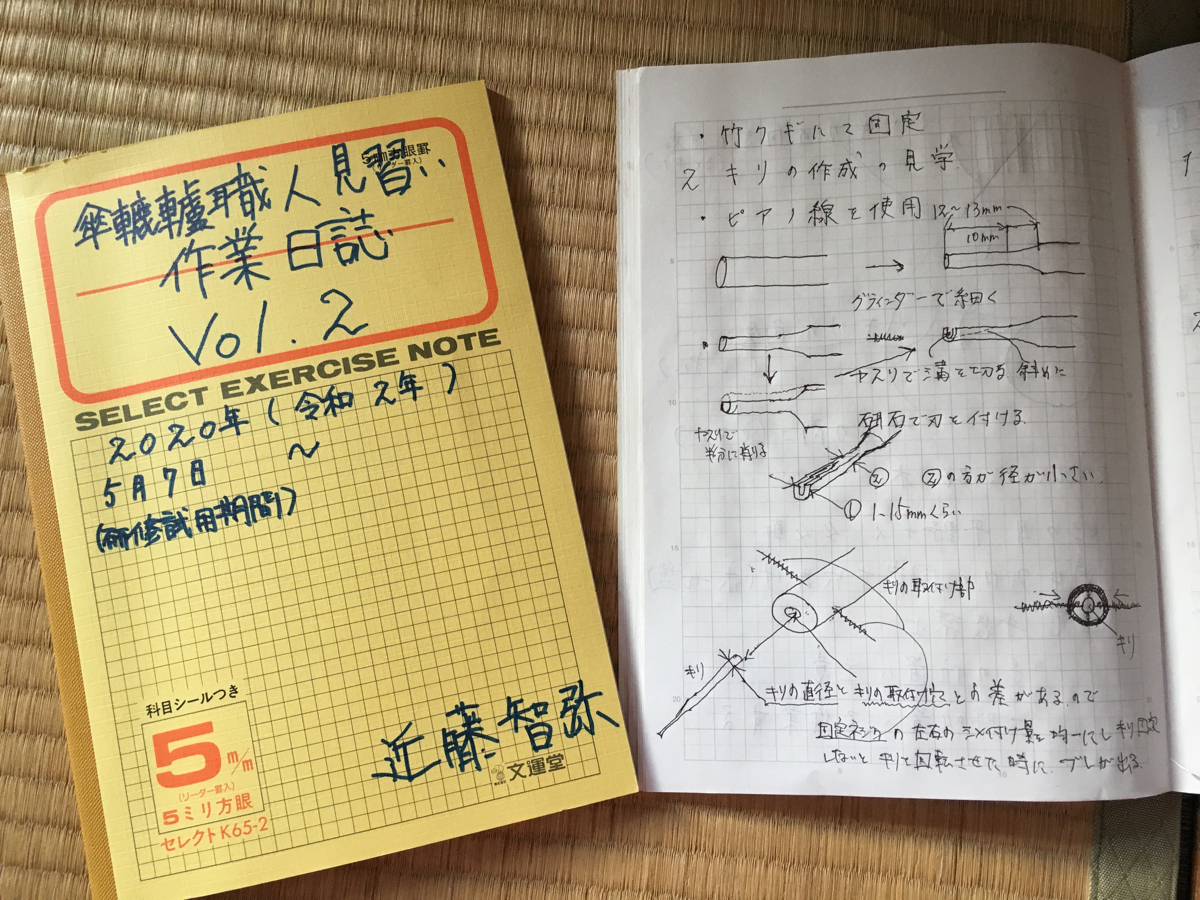 5mm方眼罫
(リーダー罫入)
傘轆轤職人見習い
作業日誌
Vol.2
SELECT EXERCISE NOTE
2020年(令和2年)
5月7日 〜
(研修試用期間)
科目シールつき
5m/m
(リーダー罫入)
5ミリ方眼
セレクトK65-2
近藤智弥
文運堂
・竹クギにて固定
2 キリの作成の見学
・ピアノ線を使用
12〜13mm
10mm
グラインダーで細く
ヤスリで溝を切る 斜めに
ヤスリで
半分に削る
砥石で刃を付ける
② ②の方が径が小さい
① 1〜1.5mmくらい
キリの取付け部
キリ
キリ
キリの直径とキリの取付け穴との差があるので
固定ネジの左右のシメ付け量を均一にしキリ固定
しないとキリを回転させた時に、ブレが出る